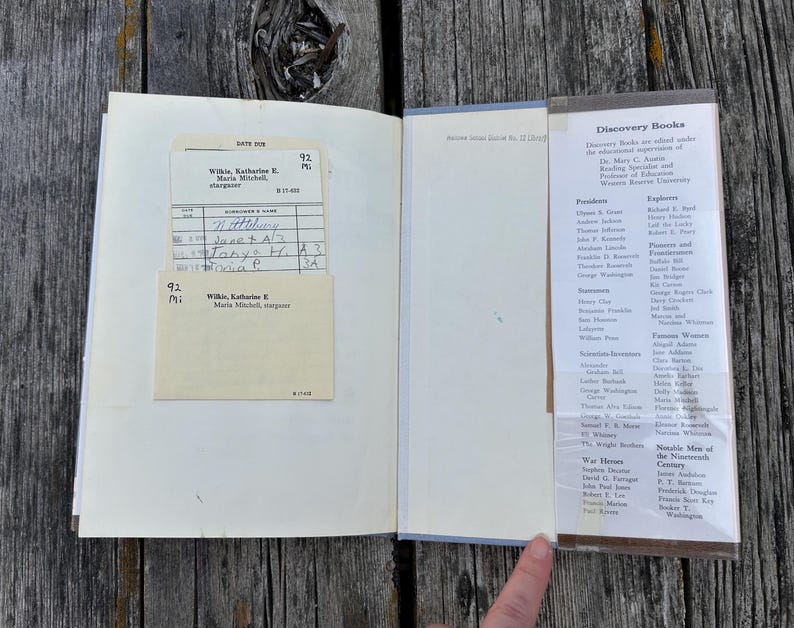 DATE DUE
92
Mi
Wilkie, Katharine E.
Maria Mitchell,
stargazer
B 17-632
DATE DUE
BORROWER'S NAME
Janet A 3
Tonya H. A 3
Tonia P. 3A
92
Mi
Wilkie, Katharine E
Maria Mitchell, stargazer
B 17-632
School District No. 12 Library
Discovery Books
Discovery Books are edited under
the educational supervision of
Dr. Mary C. Austin
Reading Specialist and
Professor of Education
Western Reserve University
Presidents
Ulysses S. Grant
Andrew Jackson
Thomas Jefferson
John F. Kennedy
Abraham Lincoln
Franklin D. Roosevelt
Theodore Roosevelt
George Washington
Statesmen
Henry Clay
Benjamin Franklin
Sam Houston
Lafayette
William Penn
Scientists-Inventors
Alexander
Graham Bell
Luther Burbank
George Washington
Carver
Thomas Alva Edison
George W. Goethals
Samuel F. B. Morse
Eli Whitney
The Wright Brothers
War Heroes
Stephen Decatur
David G. Farragut
John Paul Jones
Robert E. Lee
Francis Marion
Paul Revere
Explorers
Richard E. Byrd
Henry Hudson
Leif the Lucky
Robert E. Peary
Pioneers and
Frontiersmen
Buffalo Bill
Daniel Boone
Jim Bridger
Kit Carson
George Rogers Clark
Davy Crockett
Jed Smith
Marcus and
Narcissa Whitman
Famous Women
Abigail Adams
Jane Addams
Clara Barton
Dorothea L. Dix
Amelia Earhart
Helen Keller
Dolly Madison
Maria Mitchell
Florence Nightingale
Annie Oakley
Eleanor Roosevelt
Narcissa Whitman
Notable Men of
the Nineteenth
Century
James Audubon
P. T. Barnum
Frederick Douglass
Francis Scott Key
Booker T.
Washington